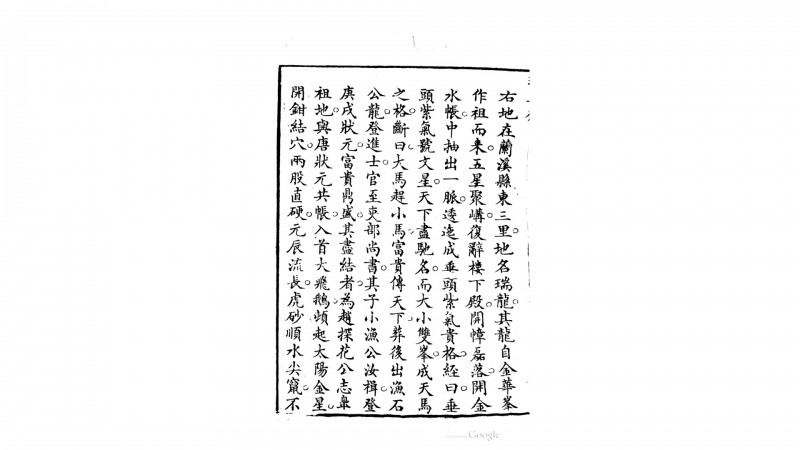 右地在蘭溪縣東三里地名瑞龍其龍自金華峯
作祖而来五星聚嶹復辭樓下殿開幛磊落開金
水帳中抽出一脈逶迤成垂頭紫氣貴格經曰垂
頭紫氣號文星天下盡馳名而大小雙峯成天馬
之格斷曰大馬趕小馬富貴傳天下葬後出漁石
公龍登進士官至吏部尚書其子小漁公汝楫登
庚戌狀元富貴鼎盛其盡結者為趙探花公志臯
祖地與唐狀元共帳入首大飛鵝頓起太陽金星
開鉗結穴兩股直硬元辰流長虎砂順水尖竄不
Google